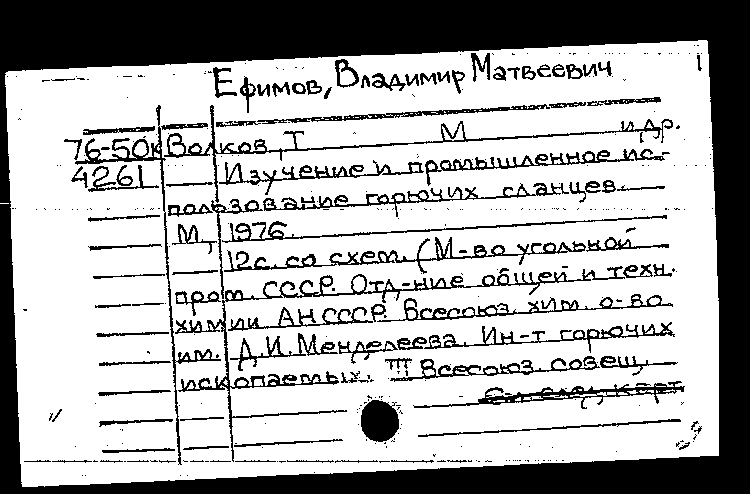 Ефимов, Владимир Матвеевич
76-50к Волков, Т М и др.
4261 Изучение и промышленное ис-
пользование горючих сланцев.
М., 1976.
12с. со схем. (М-во угольной
пром. СССР. Отд-ние общей и техн.
химии АН СССР. Всесоюз. хим. о-во
им. Д.И. Менделеева. Ин-т горючих
ископаемых. III Всесоюз. совещ.
См. след. карт.